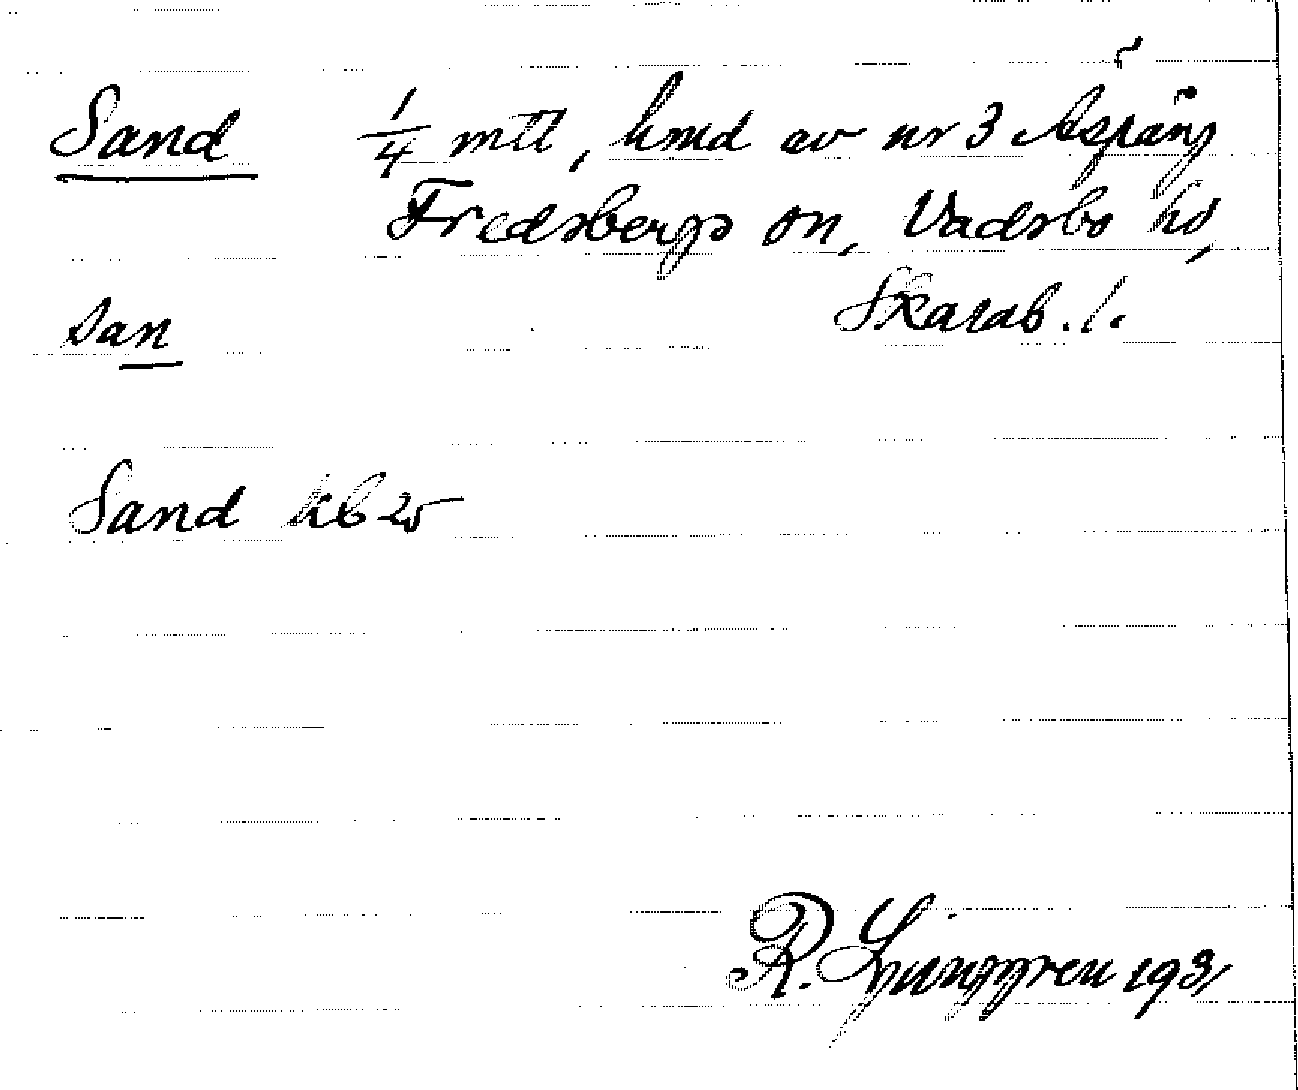 Sand 1/4 mtl, hmd av nr 3 Aspäng
Fredsbergs sn, Vadsbo hd,
Skarab. l.
san
Sand kb 25
R. Ljunggren 1931